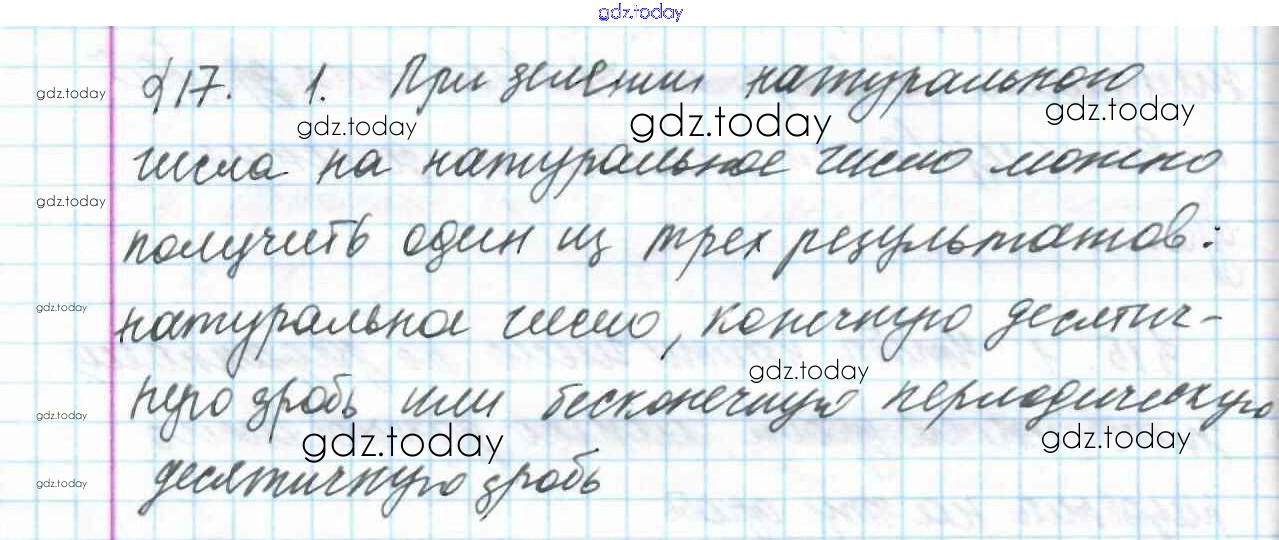 gdz.today
§17. 1. При делении натурального
gdz.today gdz.today gdz.today gdz.today
числа на натуральное число можно
gdz.today
получить один из трех результатов:
gdz.today
натуральное число, конечную десятич-
gdz.today
ную дробь или бесконечную периодическую
gdz.today gdz.today gdz.today
десятичную дробь
gdz.today